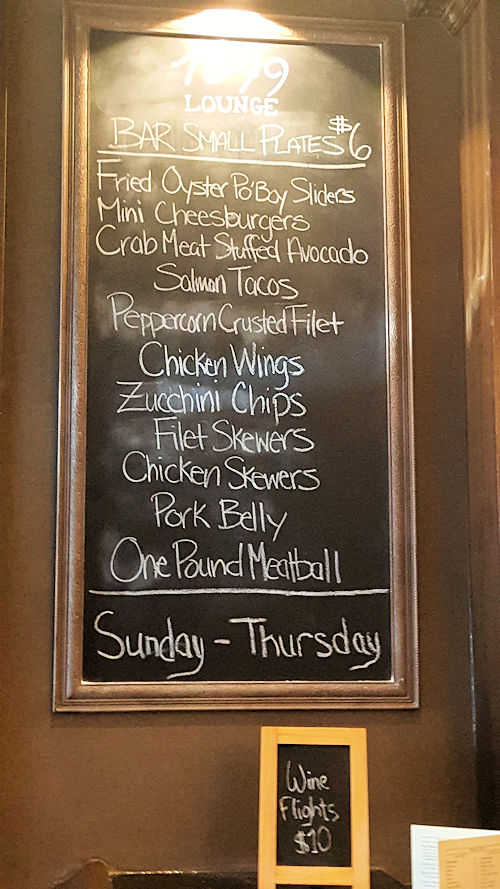 LOUNGE
BAR SMALL PLATES $6
Fried Oyster Po'Boy Sliders
Mini Cheesburgers
Crab Meat Stuffed Avocado
Salmon Tacos
Peppercorn Crusted Filet
Chicken Wings
Zucchini Chips
Filet Skewers
Chicken Skewers
Pork Belly
One Pound Meatball
Sunday - Thursday
Wine
Flights
$10